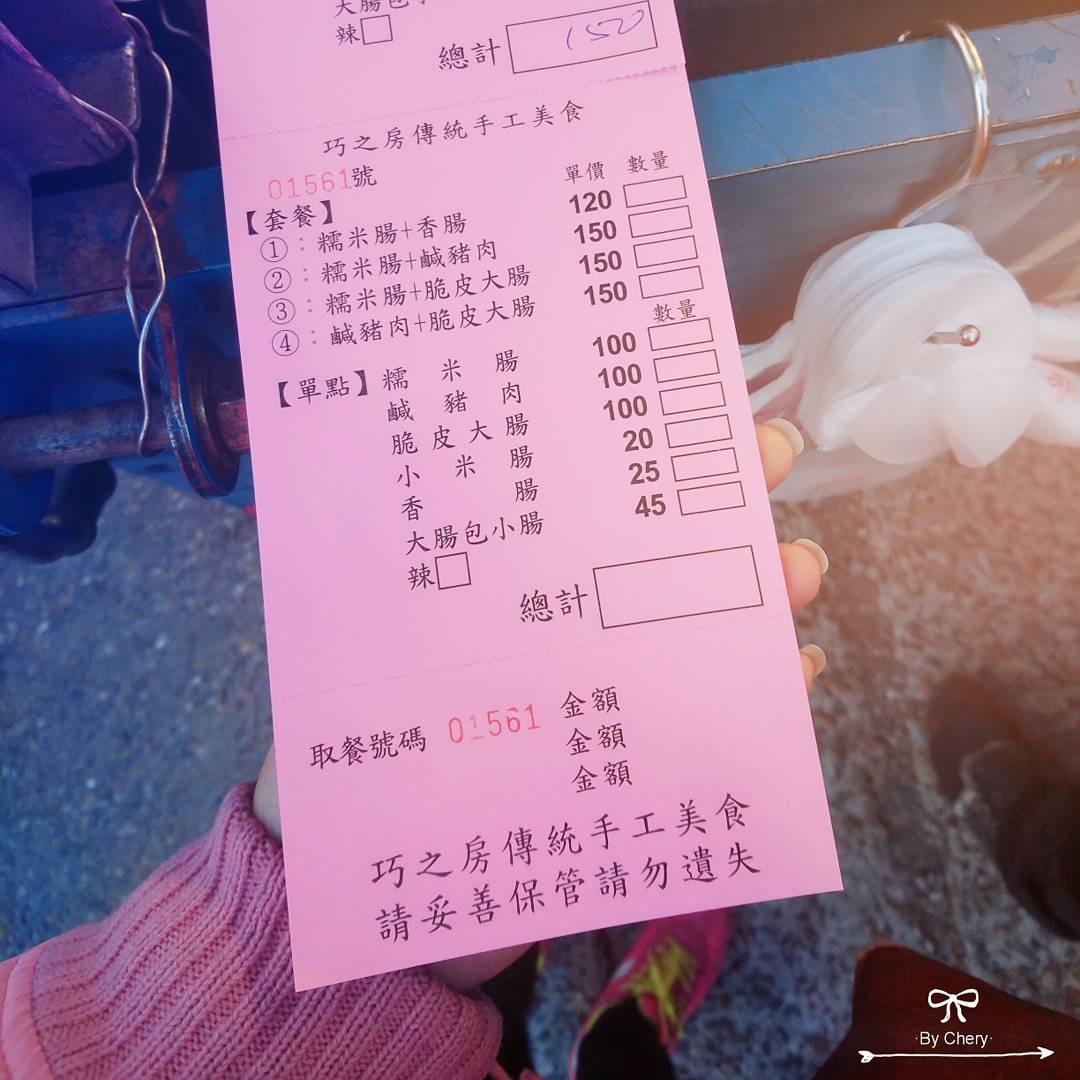 辣□
總計 150
巧之房傳統手工美食
01561號
單價 數量
【套餐】
①：糯米腸+香腸 120
②：糯米腸+鹹豬肉 150
③：糯米腸+脆皮大腸 150
④：鹹豬肉+脆皮大腸 150
數量
【單點】糯米腸 100
鹹豬肉 100
脆皮大腸 100
小米腸 20
香腸 25
大腸包小腸 45
辣□
總計
取餐號碼 01561 金額
金額
金額
巧之房傳統手工美食
請妥善保管請勿遺失
·By Chery·